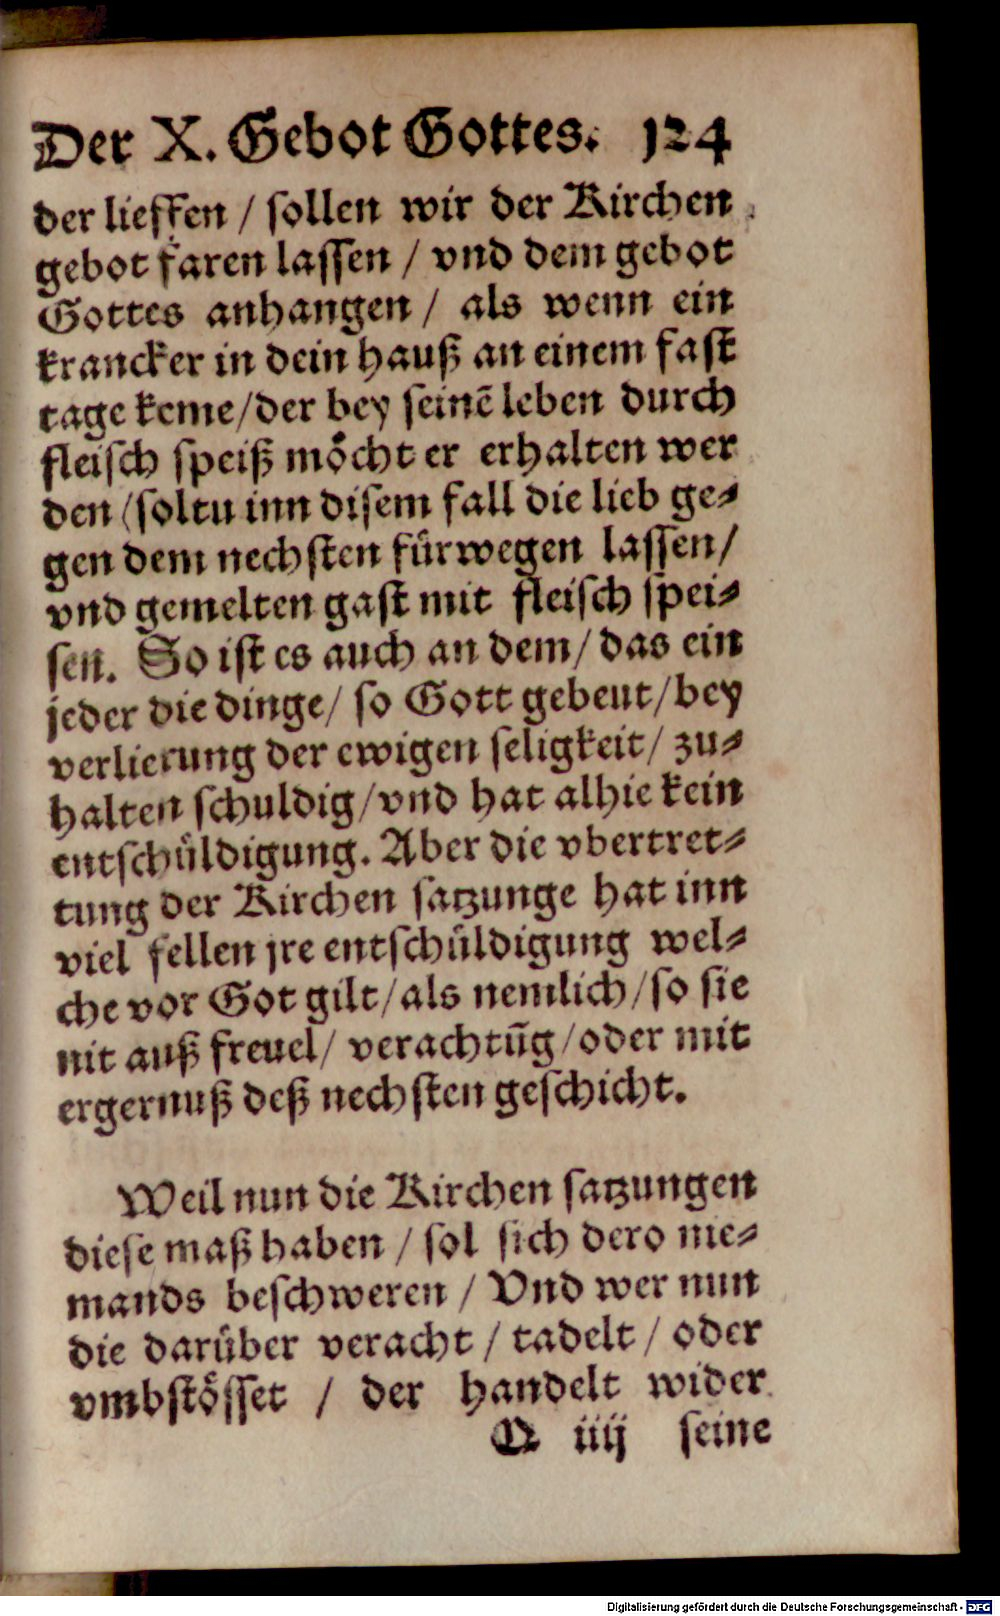 Der X. Gebot Gottes. 124
der lieffen / sollen wir der Kirchen
gebot faren lassen / vnd dem gebot
Gottes anhangen / als wenn ein
krancker in dein hauß an einem fast
tage keme/der bey seinē leben durch
fleisch speiß moͤcht er erhalten wer
den (soltu inn disem fall die lieb ge-
gen dem nechsten fuͤrwegen lassen/
vnd gemelten gast mit fleisch spei-
sen. So ist es auch an dem/ das ein
jeder die dinge/ so Gott gebeut/bey
verlierung der ewigen seligkeit/ zu-
halten schuldig/vnd hat alhie kein
entschuͤldigung. Aber die vbertret-
tung der Kirchen satzunge hat inn
viel fellen jre entschuͤldigung wel-
che vor Got gilt/als nemlich/so sie
nit auß freuel/ verachtūg/oder mit
ergernuß deß nechsten geschicht.
Weil nun die Kirchen satzungen
diese maß haben / sol sich dero nie-
mands beschweren / Vnd wer nun
die daruͤber veracht / tadelt / oder
vmbstoͤsset / der handelt wider
Q iiij seine
Digitalisierung gefördert durch die Deutsche Forschungsgemeinschaft - DFG